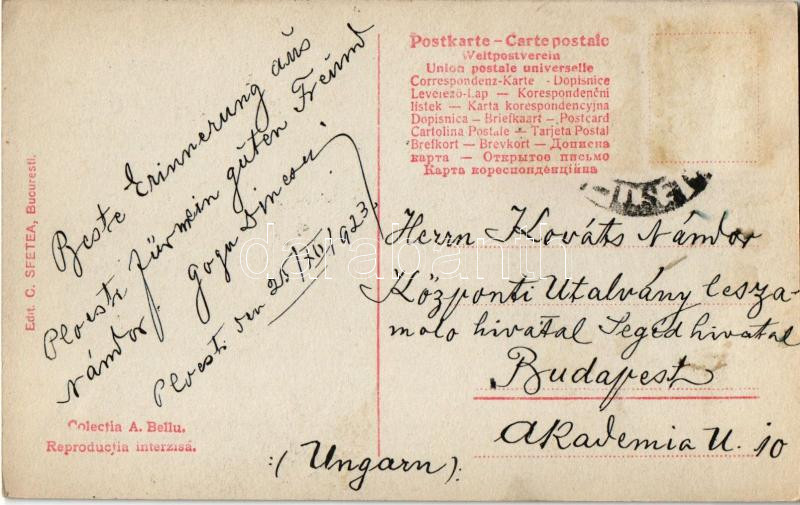 Postkarte – Carte postale
Weltpostverein
Union postale universelle
Correspondenz-Karte - Dopisnice
Levelező-Lap — Korespondenční
listek — Karta korespondencyjna
Dopisnica — Briefkaart — Postcard
Cartolina Postale — Tarjeta Postal
Brefkort — Brevkort — Дописна
карта — Открытое письмо
Карта кореспонденційна
Edit. C. SFETEA, Bucuresti.
Beste Erinnerung aus
Ploesti für mein guten Freund
Nándor. Gogu Dincsu
Ploesti den 25/XII/1923.
Herrn Kováts Nándor
Központi Utalvány lesza-
molo hivatal Segédhivatal
Budapest
Akademia U. 10
:(Ungarn):
Colectia A. Bellu.
Reproducția interzisă.
darabanth